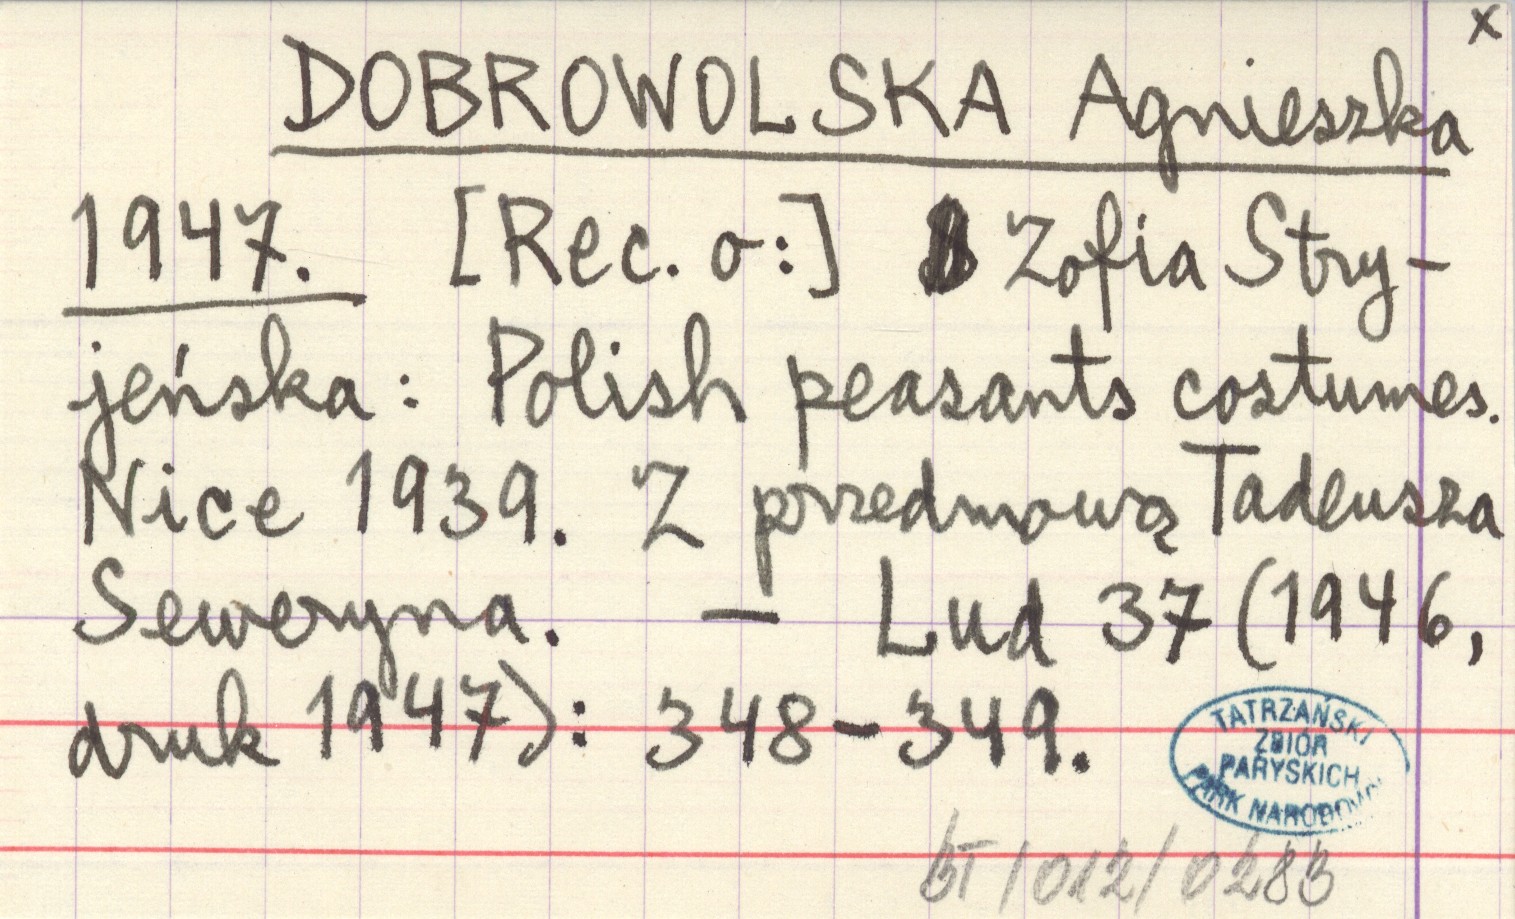 x
DOBROWOLSKA Agnieszka
1947. [Rec. o:] Zofia Stry-
jeńska: Polish peasants costumes.
Nice 1939. Z przedmową Tadeusza
Seweryna. — Lud 37 (1946,
druk 1947): 348-349.
TATRZAŃSKI
ZBIÓR
PARYSKICH
PARK NARODOWY
BT/012/0283